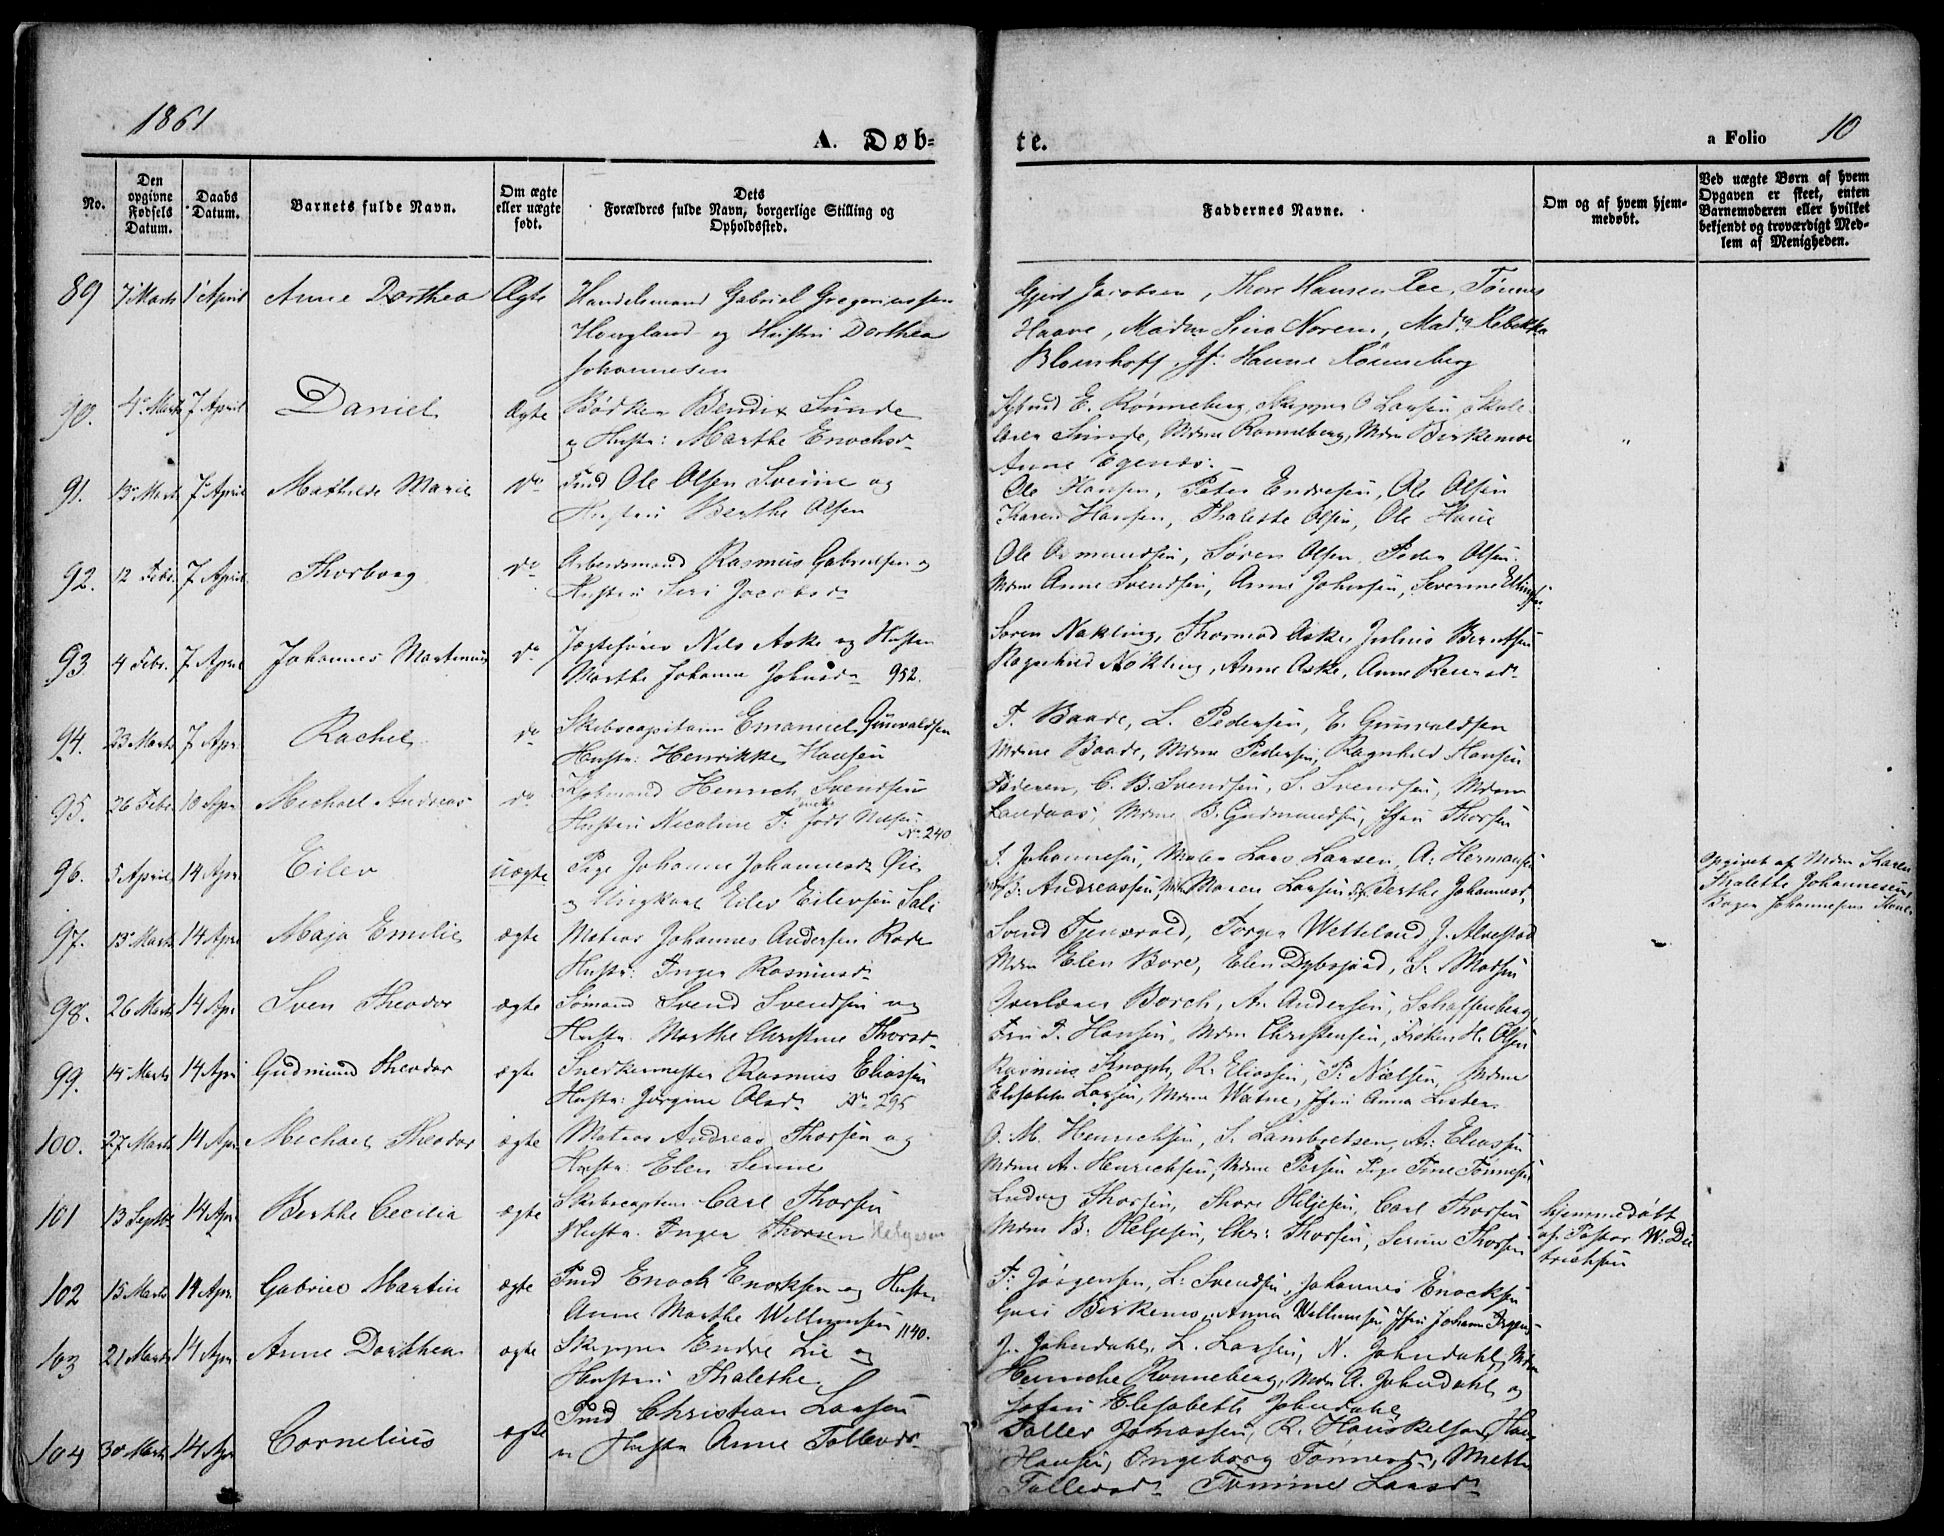 1861
A. Døb-
te.
a Folio 10
No.
Den opgivne Fødsels Datum.
Daabs Datum.
Barnets fulde Navn.
Om ægte eller uægte født.
Dets
Forældres fulde Navn, borgerlige Stilling og
Opholdssted.
Faddernes Navne.
Om og af hvem hjem-
medøbt.
Ved uægte Børn af hvem
Opgaven er skeet, enten
Barnemoderen eller hvilket
bekjendt og troværdigt Med-
lem af Menigheden.
89 7 Marts 1 April Anne Dorthea Ægte Handelsmand Gabriel Gregoriussen
Hougland og Hustru Dorthea
Johannesen
Gjert Jacobsen, Thore Hansen Ree, Tönnes
Haave, Madm Sina Norem, Mad. Rebekka
Blomhoff, Jf. Hanne Rönneberg
90. 4 Marts 7 April Daniel Ægte Bødker Bendix Sunde
og Hustr: Marthe Enochsd
E. Rönneberg, Skipper O Larsen, Skole-
lærer Sunde, Mdme Rönneberg, Mdm Birkemoe
Anne Egenes.
91. 15 Marts 7 April Mathilde Marie do Tmd Ole Olsen Sveine og
Hustru Berthe Olsen
Ole Hansen, Peter Endresen, Ole Olsen
Karen Hansen, Thalette Olsen, Ole
92. 12 Febr. 7 April Thorborg do Arbeidsmand Rasmus Gabrielsen og
Hustru Siri Jacobsd
Ole Osmundsen, Søren Olsen, Peder Olsen
Mdm Anne Svendsen, Anne Johnsen, Severine Ellingsen
93. 4 Febr. 7 April Johannes Martinius do Jægtefører Nils Aske og Hustru
Marthe Johanne Johnsd 952.
Søren Nokling, Thormod Aske, Julius Berntsen
Ragnhild Nökling, Anne Aske, Anne
94. 23 Marts 7 Apr. Rachel do Skibscapitain Emanuel Gunvaldsen
Hustr: Henrikke Hansen
T. Baade, L. Pedersen, E. Gunvaldsen
Mdme Baade, Mdme Pedersen, Ragnhild Hansen
95. 26 Febr. 10 Apr. Michael Andreas do Kjøbmand Henrich Svendsen
Hustru Nicoline T. født No 240
Faderen, C. B. Svendsen, S. Svendsen, Mdm
Landaas, Mdme B. Gudmundsen, Jfru Thorsen
96. 5 April 14 Apr. Eilev uægte Pige Johanne Johannesd. Øie
og Ungkarl Eilev Eilevsen Sali
J. Johannesen, Mates Lars Larsen, A. Hermansen
Andreassen, Maren Larsen, Berthe Johannesd.
Opgivet af Mdm Karen
Thalette Johannesen,
Johannesens
97. 13 Marts 14 Apr. Maja Emilie ægte Matros Johannes Andersen
Hustr: Inger Rasmusd.
Svend Tjensvold, Torger Wetteland, J. Alvestad
Mdm Elen Bore, Elen Dybsjord, S. Madsen
98. 26 Marts 14 Apr. Sven Theodor ægte Sömand Svend Svendsen og
Hustr. Marthe Christine Thorsd
Overlærer Borch, A. Andersen, Schaffenberg,
Fru T. Hansen, Mdm Christensen, Frøken H. Olsen
99. 14 Marts 14 Apr. Gudmund Theodor ægte Snedkermester Rasmus Eliassen
Hustr: Jørgine Olsd. No 295
Rasmus Knoph, R. Eliassen, P. Nielsen, Mdme
Elisabeth Larsen, Mdme Watne, Jfru Anna Lister.
100. 27 Marts 14 Apr. Michael Theodor ægte Matros Andreas Thorsen og
Hustr. Elen Serine
O. M. Henrichsen, S. Lambretsen, A. Eliassen
Mdme A. Henrichsen, Mdme Persen, Pige Tine Tönnesen
101 13 Septb 14 Apr. Berthe Cecilia ægte Skibscapten Carl Thorsen
Hustr. Inger Thorsen Helgesen
Ludvig Thorsen, Thore Heljesen, Carl Thorsen
Mdm B. Heljesen, Chr. Thorsen, Serine Thorsen
hjemmedøbt
af Pastor W. Die
trichsen
102 15 Marts 14 Apr. Gabriel Martin ægte Tmd Enock Enocksen og Hustr.
Anne Marthe Willumsen 1140.
T. Jörgensen, L. Svendsen, Johannes Enocksen
Guri Birkemo, Anna Willumsen, Jfru Johanne
103 21 Marts 14 Apr. Anne Dorthea ægte Skipper Endre Lie og
Hustru Thalethe
J. Johndahl, L. Larsen, N. Johndahl, Mdm
Henriche Rønneberg, Mdm A. Johndahl og
Jofru Elisabeth Johndahl
104 30 Marts 14 Apr Cornelius ægte Tmd Christian Larsen
Hustr Anne Tollevsd
Toller Johnassen, R. Hauskelsen,
Hansen, Ingeborg Tönnesd., Mette
Tollevsd. Tomine Larsd.